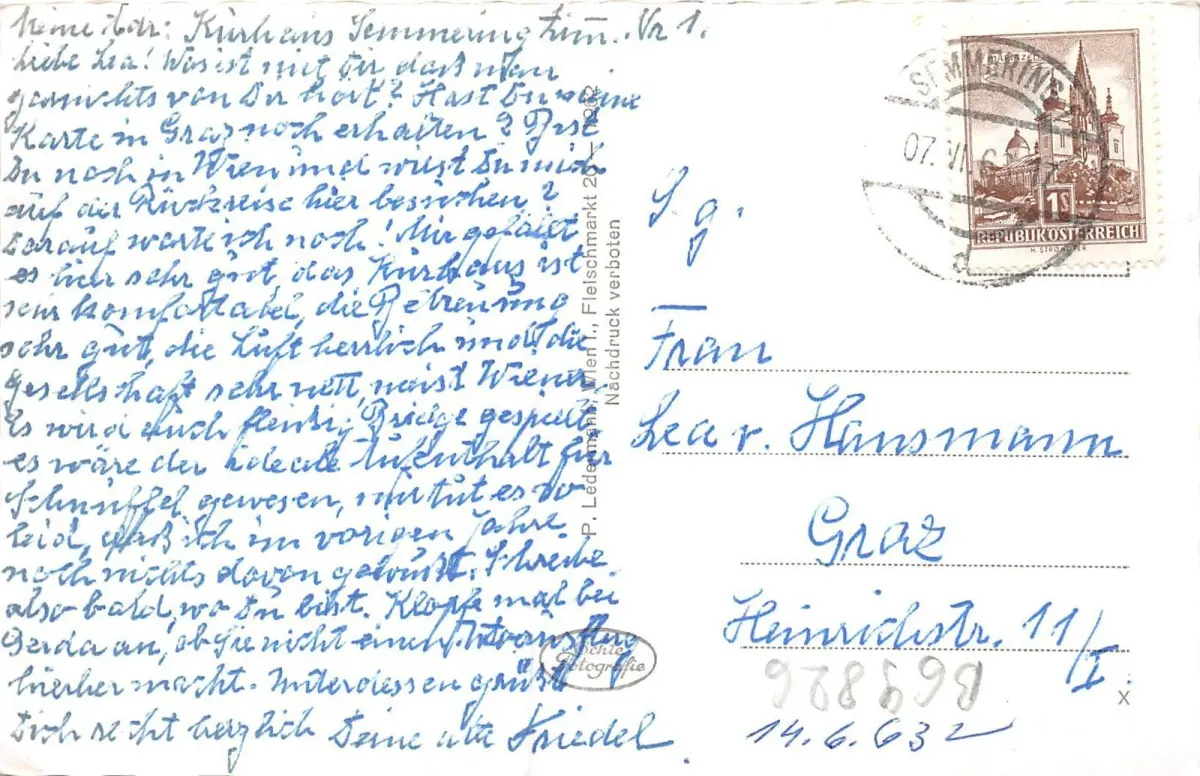 Meine Adr: Kurhaus Semmering Zim. Nr 1.
Liebe Lea! Was ist mit Dir daß man
garnichts von Dir hört? Hast Du meine
Karte in Graz noch erhalten? Bist
Du noch in Wien und wirst Du mich
auf der Rückreise hier besuchen?
Darauf warte ich noch! Mir gefällt
es hier sehr gut, das Kurhaus ist
sehr komfortabel, die Betreuung
sehr gut, die Luft herrlich und die
Gesellschaft sehr nett, meist Wiener.
Es wird auch fleißig Bridge gespielt
es wäre der ideale Aufenthalt für
Schnüffel gewesen, mir tut es so
leid, daß ich im vorigen Jahre
noch nichts davon gewußt. Schreibe
also bald, wo Du bist. Klopfe mal bei
Gerda an, ob sie nicht einen Autoausflug
hierher macht. Unterdessen grüßt
Dich recht herzlich Deine alte Friedel
P. Ledermann, Wien I., Fleischmarkt 20
Nachdruck verboten
Echte
Fotografie
SEMMERING
07. VI. 6
d
MARIAZELL
1S
REPUBLIK ÖSTERREICH
S. g.
Frau
Lea v. Hausmann
Graz
Heinrichstr. 11/I.
X
14. 6. 632